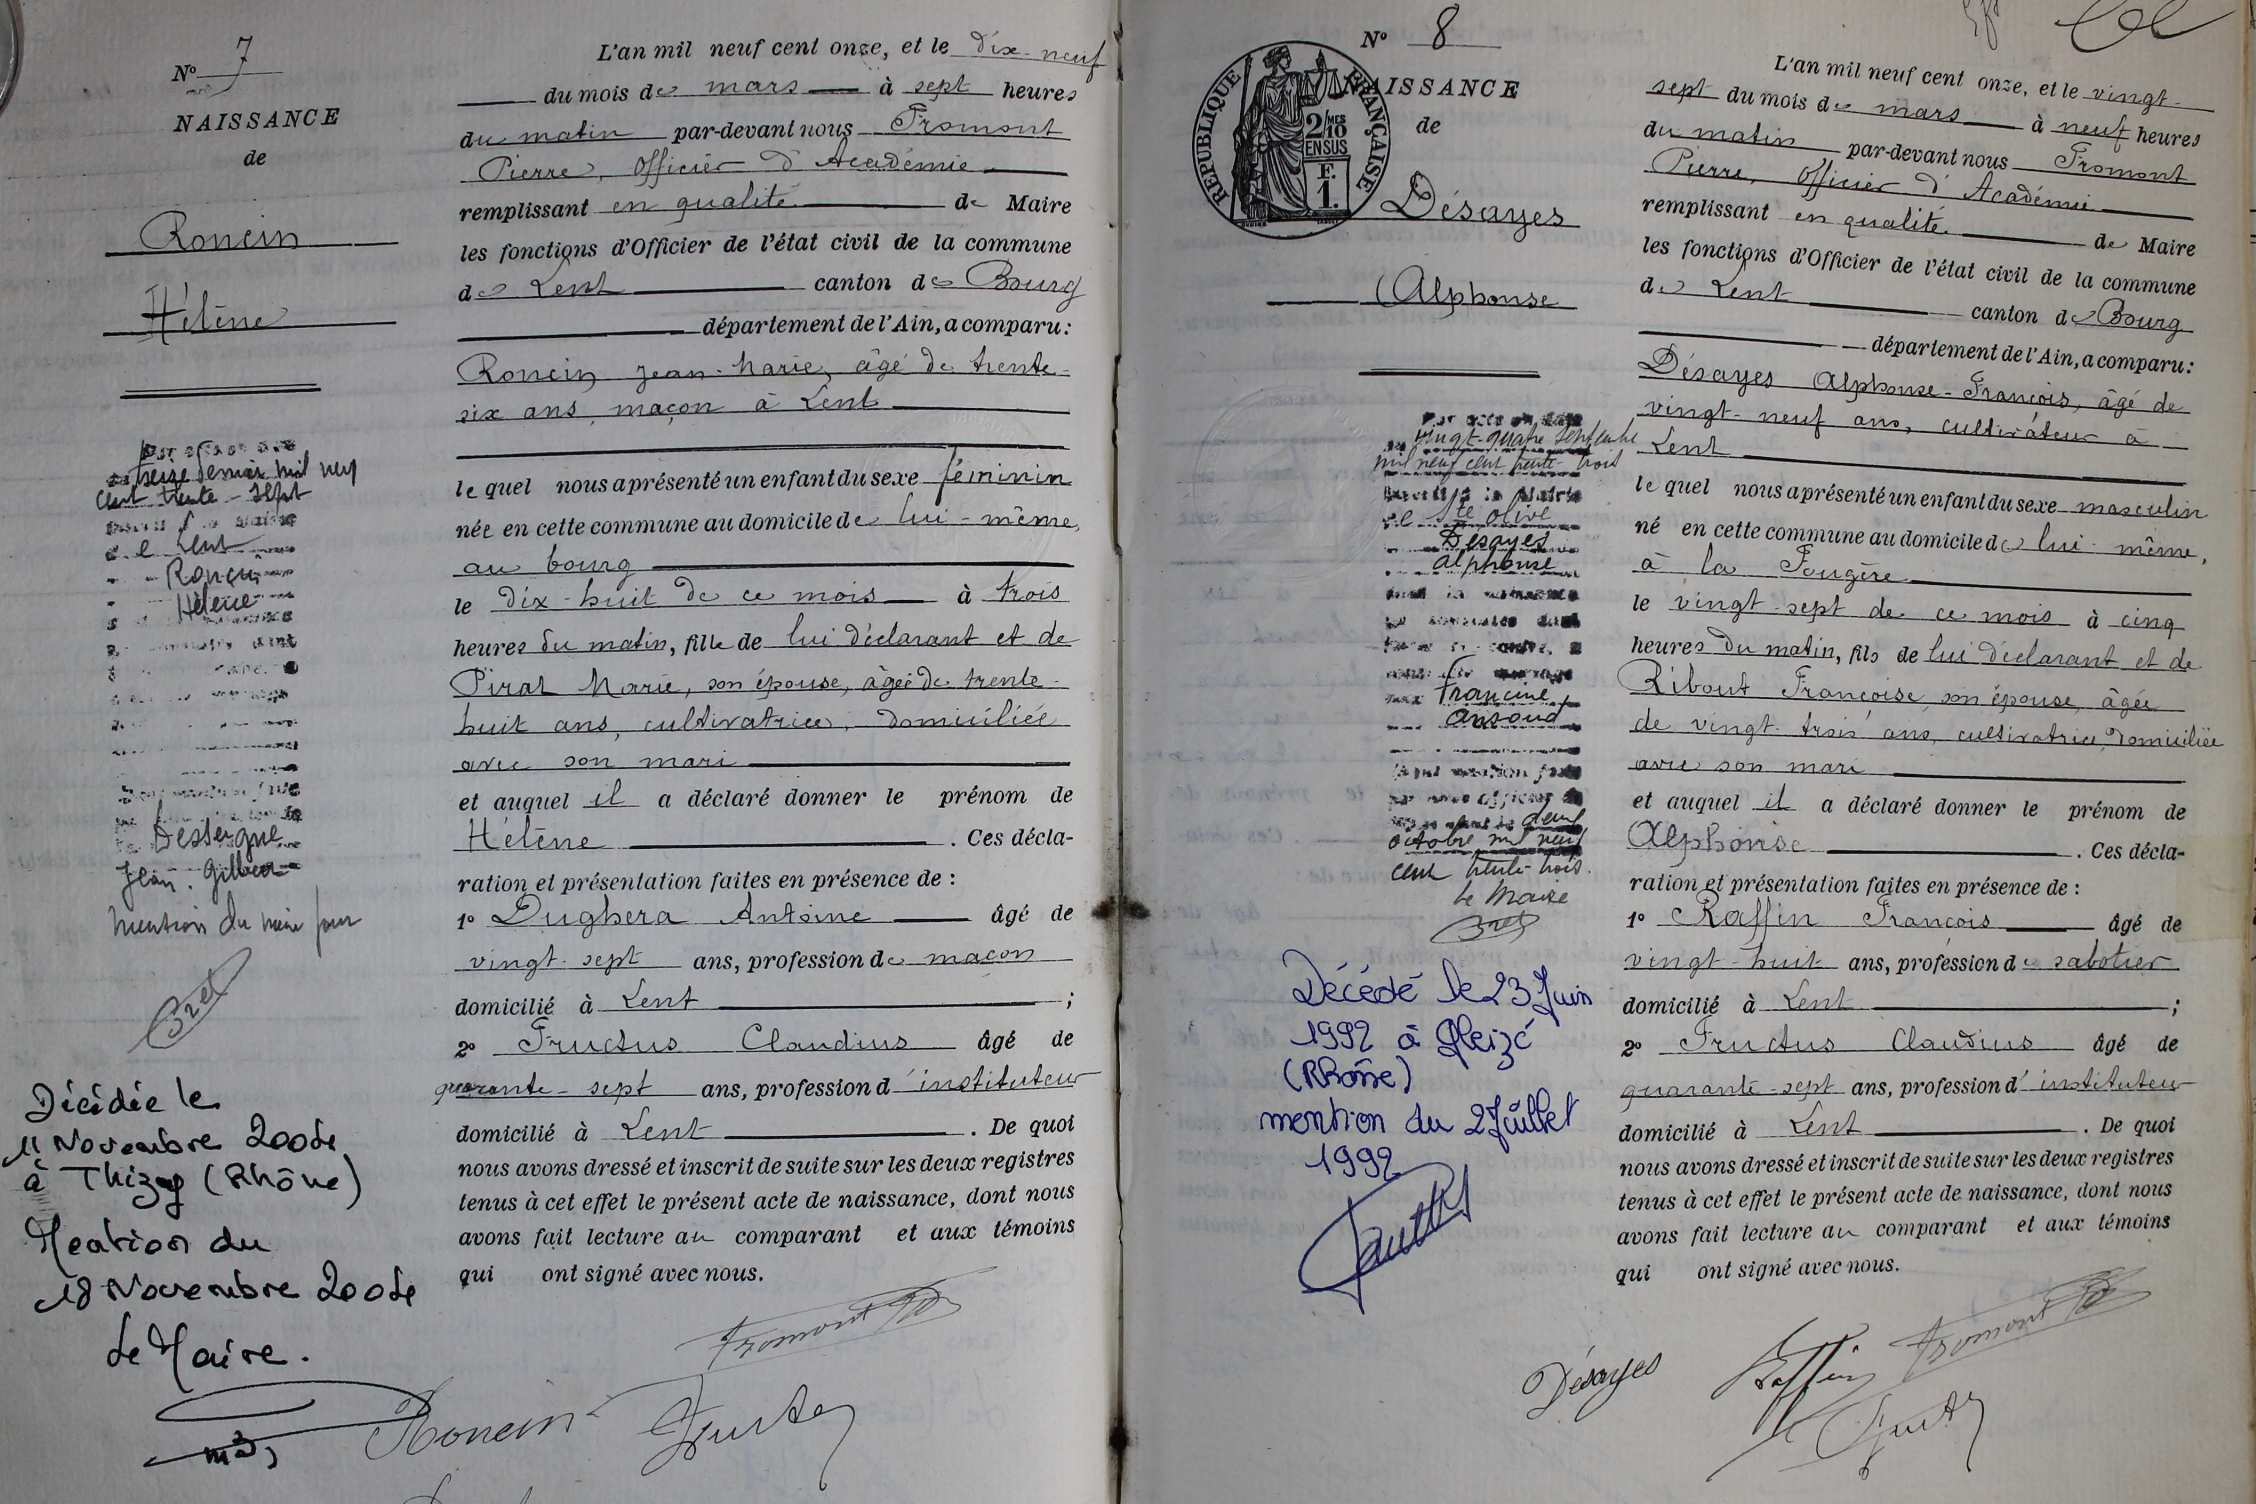 N° 7
NAISSANCE
de
Roncin
Hélène
treize Février mil neuf
cent trente-sept
de Lent
Roncin
Hélène
Dessergne
Jean. Gilbert
mention du même jour
Décédée le
11 Novembre 2004
à Thizy (Rhône)
Mention du
18 Novembre 2004
Le Maire.
L'an mil neuf cent onze, et le dix-neuf
du mois de mars à sept heures
du matin par-devant nous Fromont
Pierre, officier d'Académie
remplissant en qualité de Maire
les fonctions d'Officier de l'état civil de la commune
de Lent canton de Bourg
département de l'Ain, a comparu :
Roncin Jean-Marie, âgé de trente-
six ans, maçon à Lent
le quel nous a présenté un enfant du sexe féminin
née en cette commune au domicile de lui-même,
au bourg
le dix-huit de ce mois à trois
heures du matin, fille de lui déclarant et de
Pirat Marie, son épouse, âgée de trente-
huit ans, cultivatrice, domiciliée
avec son mari
et auquel il a déclaré donner le prénom de
Hélène . Ces décla-
ration et présentation faites en présence de :
1° Dughera Antoine âgé de
vingt-sept ans, profession de maçon
domicilié à Lent ;
2° Fructus Claudius âgé de
quarante-sept ans, profession d'instituteur
domicilié à Lent . De quoi
nous avons dressé et inscrit de suite sur les deux registres
tenus à cet effet le présent acte de naissance, dont nous
avons fait lecture au comparant et aux témoins
qui ont signé avec nous.
Fromont
Roncin
N° 8
NAISSANCE
de
RÉPUBLIQUE FRANÇAISE
2/10 MES
EN SUS
F.
1.
Désayes
Alphonse
Par acte en date
vingt-quatre septembre
mil neuf cent trente-trois
de Ste Olive
Désayes
Alphonse
Francine
deux
octobre mil neuf
cent trente-trois.
Le Maire
Décédé le 23 Juin
1992 à Gleizé
(Rhône)
mention du 2 Juillet
1992
L'an mil neuf cent onze, et le vingt-
sept du mois de mars à neuf heures
du matin par-devant nous Fromont
Pierre, officier d'Académie
remplissant en qualité de Maire
les fonctions d'Officier de l'état civil de la commune
de Lent canton de Bourg
département de l'Ain, a comparu :
Désayes Alphonse-François, âgé de
vingt-neuf ans, cultivateur à
Lent
le quel nous a présenté un enfant du sexe masculin
né en cette commune au domicile de lui-même,
à la Fougère
le vingt-sept de ce mois à cinq
heures du matin, fils de lui déclarant et de
Ribout Françoise, son épouse, âgée
de vingt-trois ans, cultivatrice, domiciliée
avec son mari
et auquel il a déclaré donner le prénom de
Alphonse . Ces décla-
ration et présentation faites en présence de :
1° Raffin François âgé de
vingt-huit ans, profession de sabotier
domicilié à Lent ;
2° Fructus Claudius âgé de
quarante-sept ans, profession d'instituteur
domicilié à Lent . De quoi
nous avons dressé et inscrit de suite sur les deux registres
tenus à cet effet le présent acte de naissance, dont nous
avons fait lecture au comparant et aux témoins
qui ont signé avec nous.
Désayes Raffin Fromont